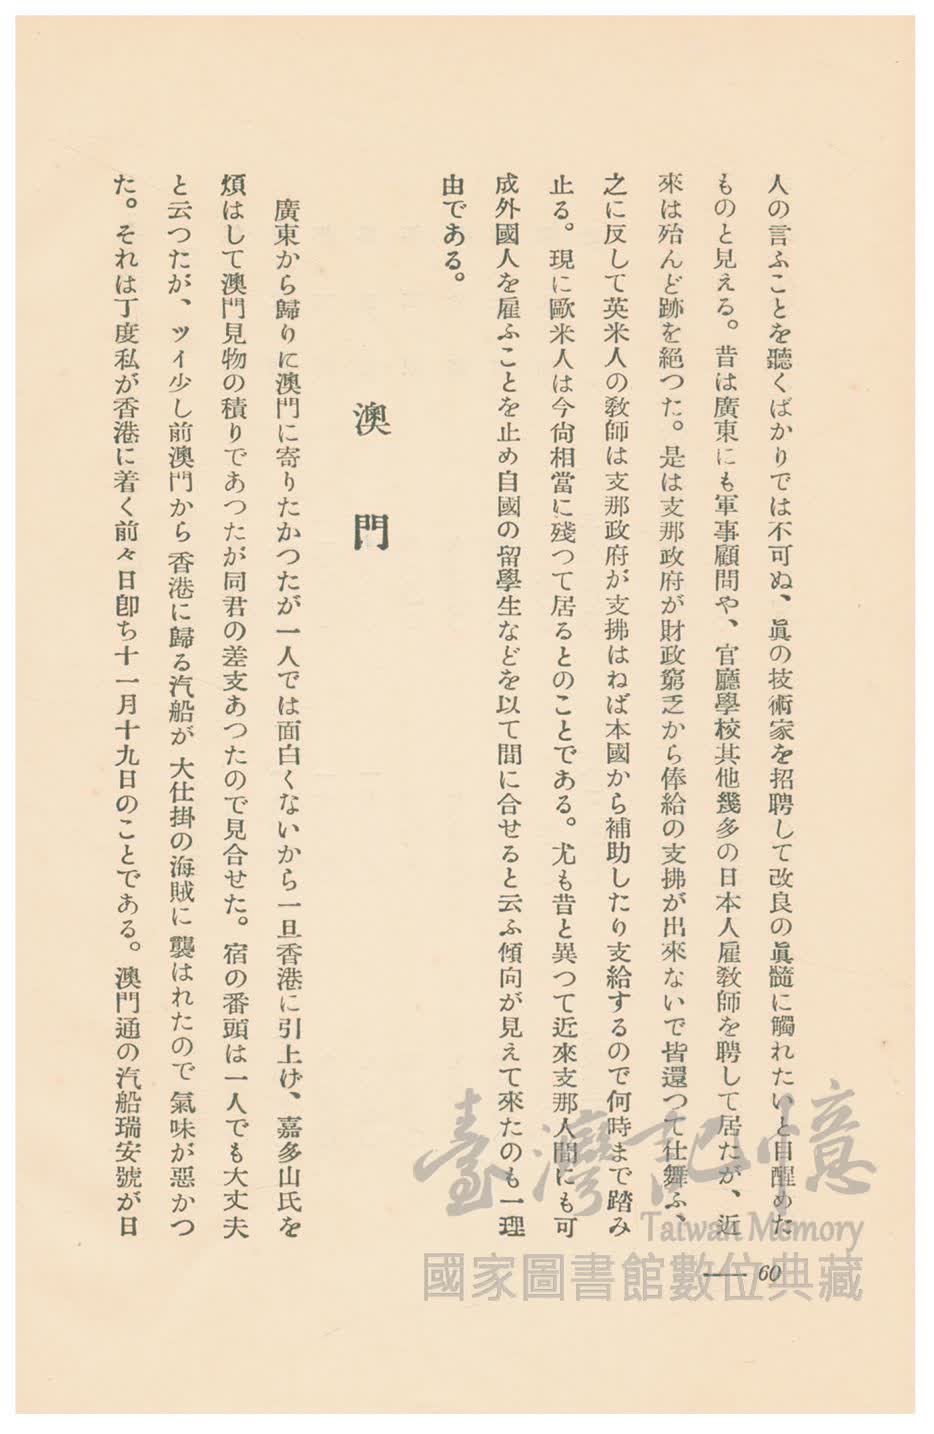 人の言ふことを聽くばかりでは不可ぬ、眞の技術家を招聘して改良の眞髓に觸れたいと目醒めた
ものと見える。昔は廣東にも軍事顧問や、官廳學校其他幾多の日本人雇敎師を聘して居たが、近
來は殆んど跡を絕つた。是は支那政府が財政窮乏から俸給の支拂が出來ないで皆還つて仕舞ふ、
之に反して英米人の敎師は支那政府が支拂はねば本國から補助したり支給するので何時まで踏み
止る。現に歐米人は今尙相當に殘つて居るとのことである。尤も昔と異つて近來支那人間にも可
成外國人を雇ふことを止め自國の留學生などを以て間に合せると云ふ傾向が見えて來たのも一理
由である。
澳門
廣東から歸りに澳門に寄りたかつたが一人では面白くないから一旦香港に引上げ、嘉多山氏を
煩はして澳門見物の積りであつたが同君の差支あつたので見合せた。宿の番頭は一人でも大丈夫
と云つたが、ツイ少し前澳門から香港に歸る汽船が大仕掛の海賊に襲はれたので氣味が惡かつ
た。それは丁度私が香港に着く前々日卽ち十一月十九日のことである。澳門通の汽船瑞安號が日
— 60
臺灣記憶
Taiwan Memory
國家圖書館數位典藏